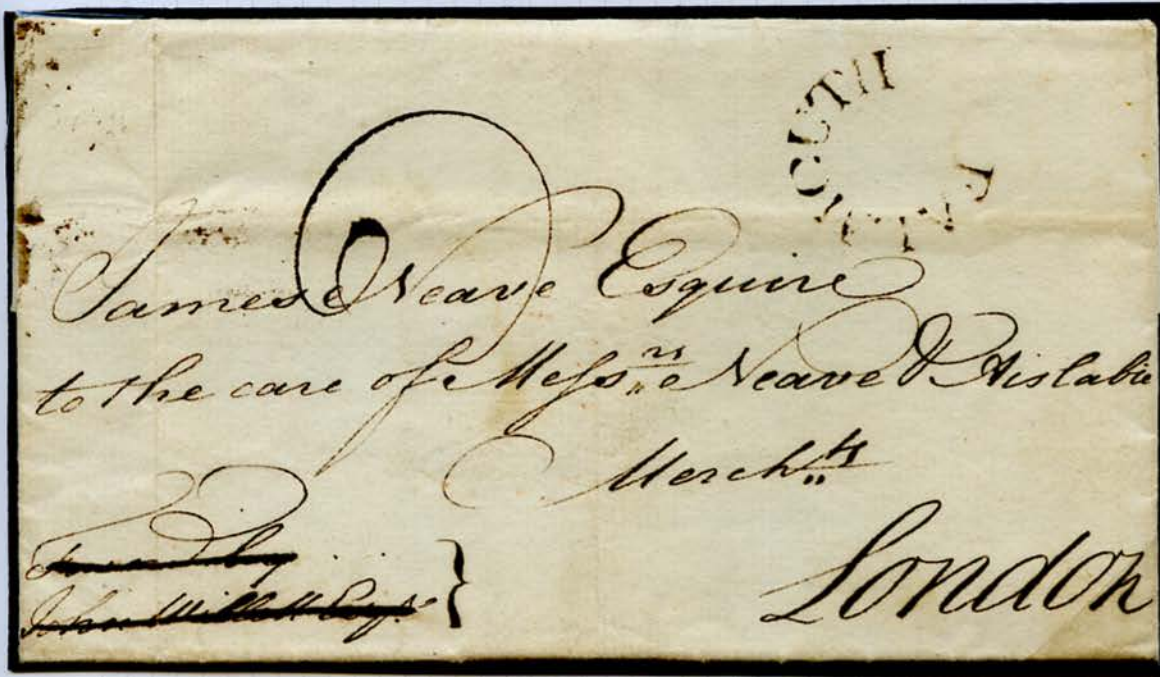 FALMOUTH
James Neave Esquire
to the care of Meſsrs Neave & Aislabie
Merchts
London
by
John Willett Esqr